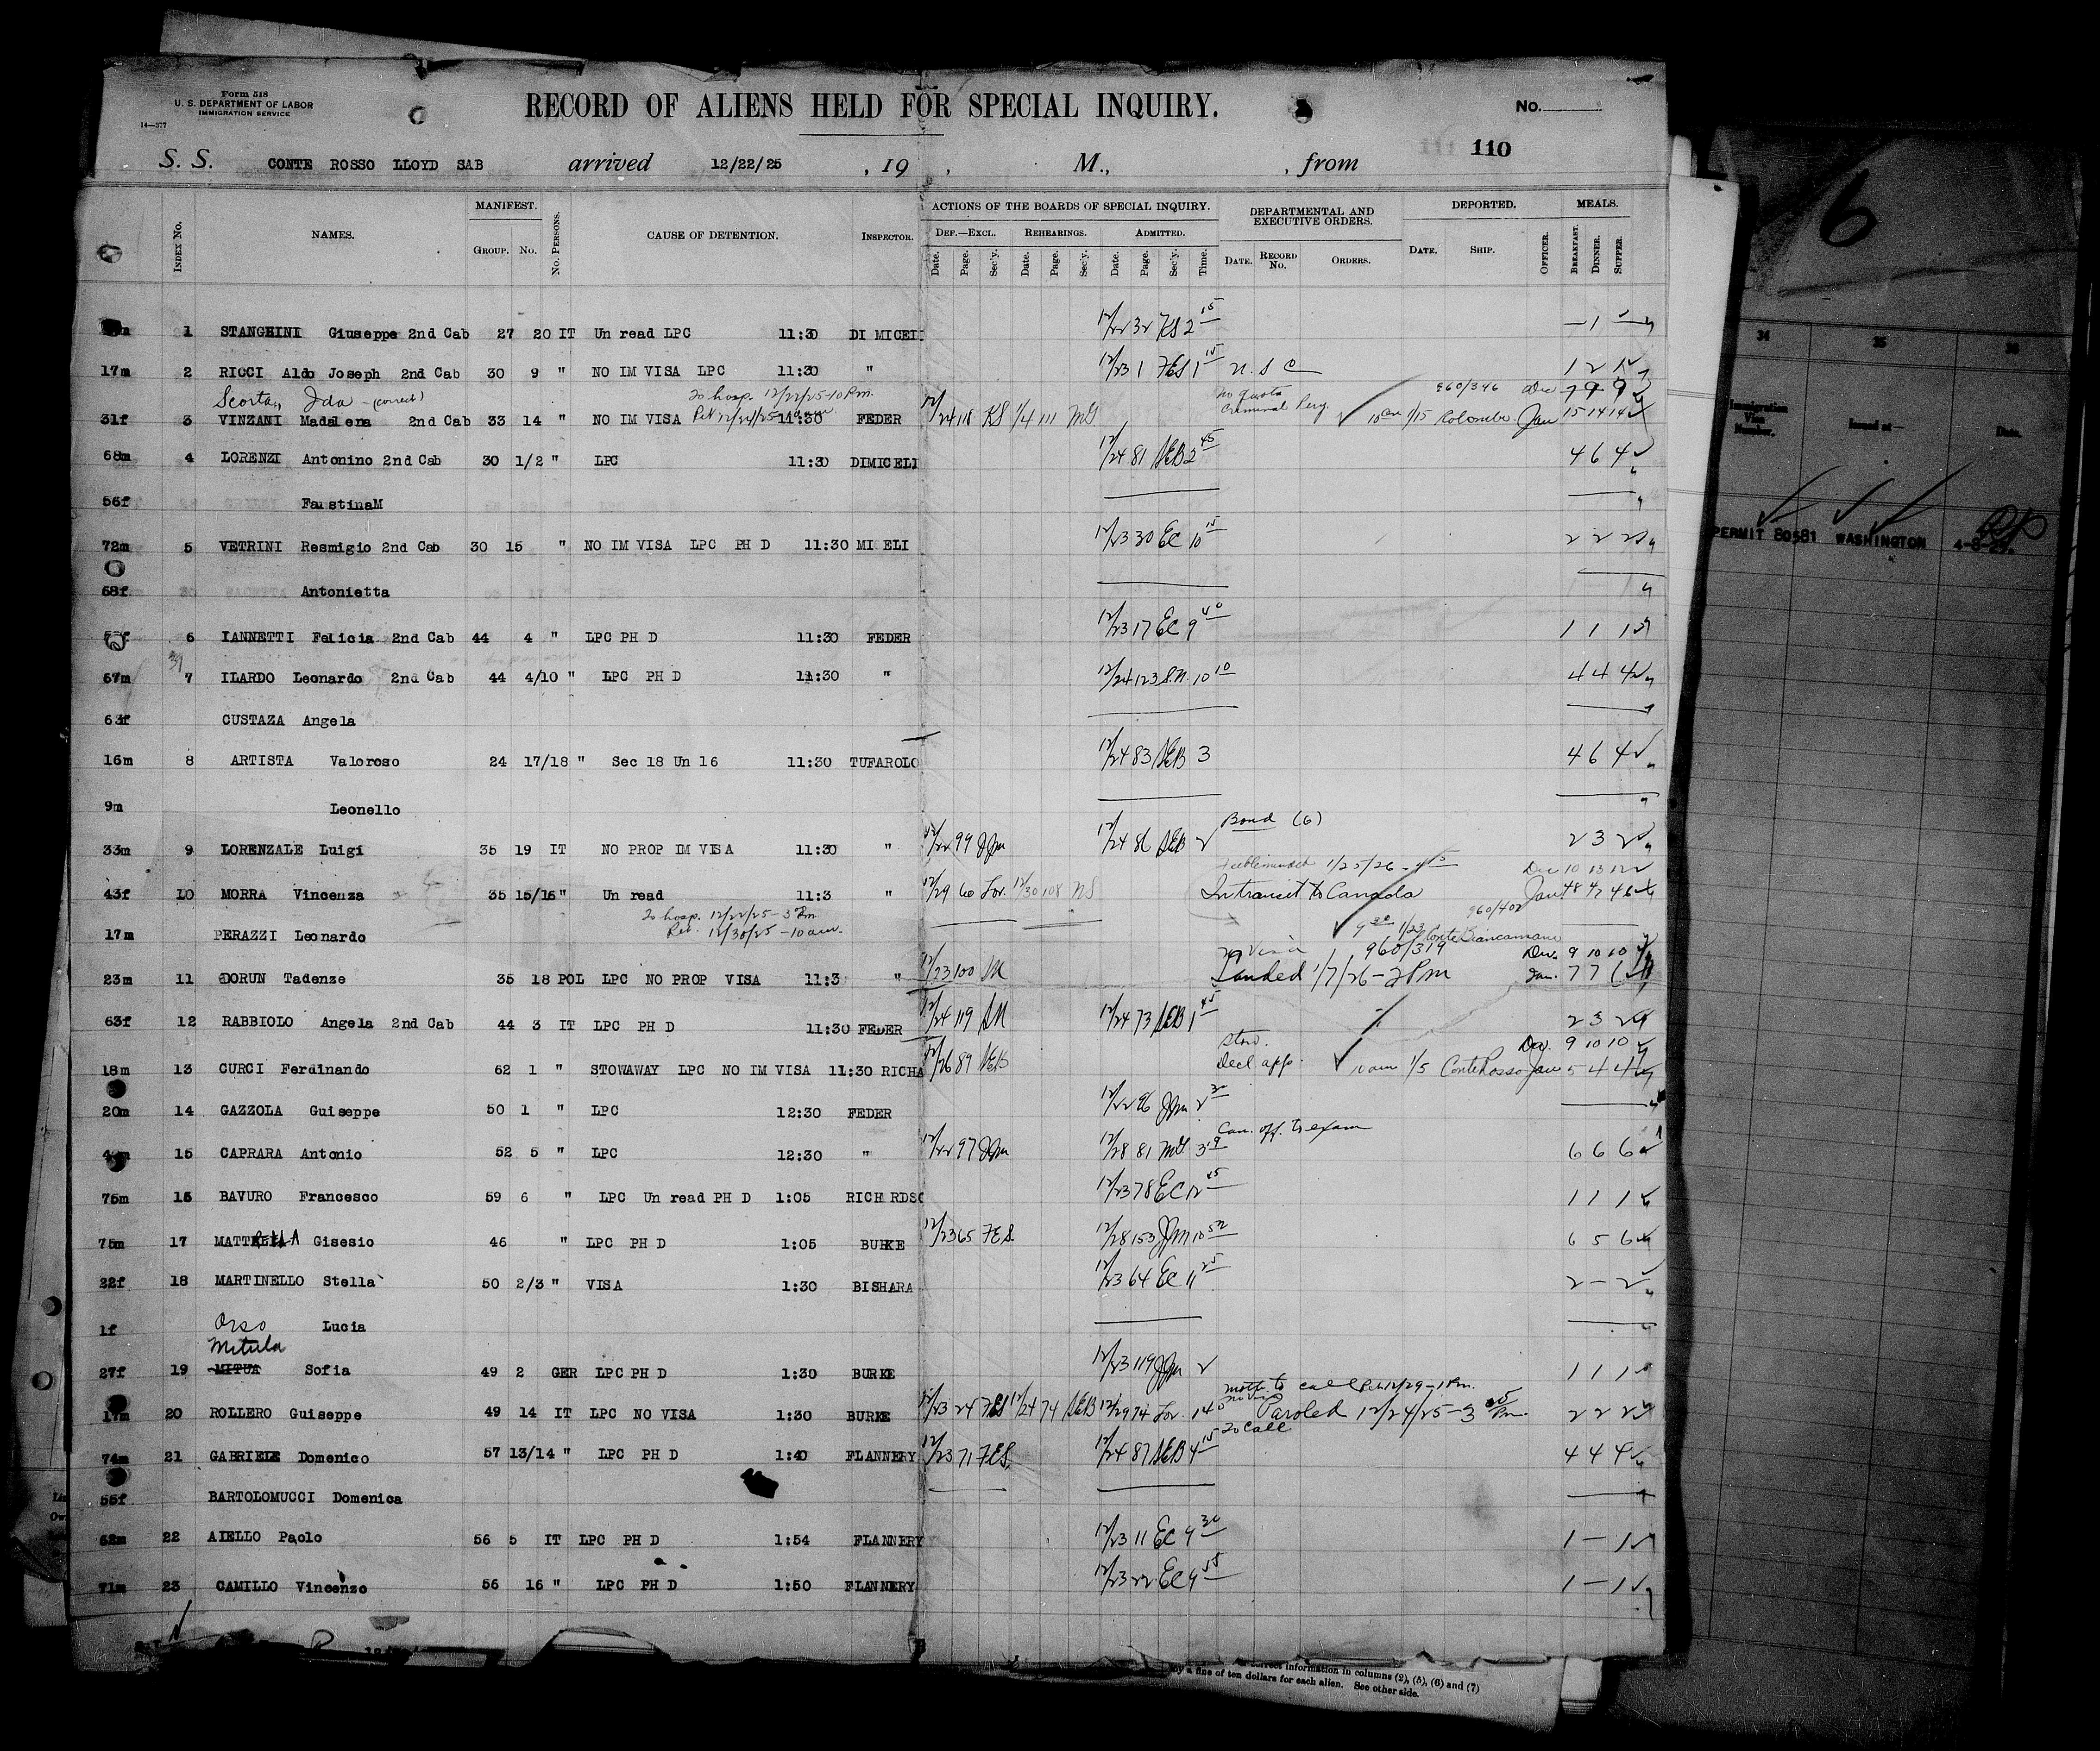 Form 518
U. S. DEPARTMENT OF LABOR
IMMIGRATION SERVICE
14—377
RECORD OF ALIENS HELD FOR SPECIAL INQUIRY.
No.
110
S. S. CONTE ROSSO LLOYD SAB arrived 12/22/25 , 19 , M., , from
INDEX No. NAMES. MANIFEST. GROUP. No. No. PERSONS. CAUSE OF DETENTION. INSPECTOR. ACTIONS OF THE BOARDS OF SPECIAL INQUIRY. DEF.—EXCL. REHEARINGS. ADMITTED. Date. Page. Sec'y. Date. Page. Sec'y. Date. Page. Sec'y. Time. DEPARTMENTAL AND EXECUTIVE ORDERS. DATE. RECORD No. ORDERS. DEPORTED. DATE. SHIP. OFFICER. MEALS. BREAKFAST. DINNER. SUPPER.
1 STANGHINI Giuseppe 2nd Cab 27 20 IT Un read LPC 11:30 DI MICELI 12/22 32 KS 2 15 — 1 —
17m 2 RICCI Aldo Joseph 2nd Cab 30 9 " NO IM VISA LPC 11:30 " 12/23 1 FES 1 15 U.S C 1 2 1
Scorta, Ida - (correct) To hosp. 12/22/25-10 Pm. No quota 960/346 Dec 7 9 9
31f 3 VINZANI Madalena 2nd Cab 33 14 " NO IM VISA Ret 12/24/25 11:30 FEDER 12/24 118 KS 1/4 111 MS Criminal Perg. 10 am 1/15 Colombo Jan 15 14 14
68m 4 LORENZI Antonino 2nd Cab 30 1/2 " LPC 11:30 DIMICELI 12/24 81 SEB 2 45 4 6 4
56f FaustinaM
72m 5 VETRINI Resmigio 2nd Cab 30 15 " NO IM VISA LPC PH D 11:30 MICELI 12/23 30 EC 10 15 2 2 2
68f Antonietta
6 IANNETTI Felicia 2nd Cab 44 4 " LPC PH D 11:30 FEDER 12/23 17 EC 9 40 1 1 1
67m 7 ILARDO Leonardo 2nd Cab 44 4/10 " LPC PH D 11:30 " 12/24 123 S.N. 10 10 4 4 4
63f CUSTAZA Angela
16m 8 ARTISTA Valoroso 24 17/18 " Sec 18 Un 16 11:30 TUFAROLO 12/24 83 SEB 3 4 6 4
9m Leonello
Bond (6)
33m 9 LORENZALE Luigi 35 19 IT NO PROP IM VISA 11:30 " 12/22 99 JJm 12/24 86 SEB 2 2 3 2
Feebleminded 1/25/26 Dec 10 13 12
43f 10 MORRA Vincenza 35 15/16 " Un read 11:3 " 12/29 60 Lor. 12/30 108 NS In transit to Canada Jan 48 47 46
To hosp. 12/22/25-3 Pm 960/402
17m PERAZZI Leonardo Ret. 12/30/25-10 am. 9 30 1/23 Conte Biancamano
No Visa 960/319 Dec. 9 10 10
23m 11 DORUN Tadenze 35 18 POL LPC NO PROP VISA 11:3 " 12/23 100 SN Landed 1/7/26-2 Pm Jan. 7 7 6
63f 12 RABBIOLO Angela 2nd Cab 44 3 IT LPC PH D 11:30 FEDER 12/24 119 SN 12/24 73 SEB 1 45 2 3 2
Stow. Dec. 9 10 10
18m 13 CURCI Ferdinando 62 1 " STOWAWAY LPC NO IM VISA 11:30 RICHA 12/26 89 SEB Decl app. 10 am 1/5 Conte Rosso Jan 5 4 4
20m 14 GAZZOLA Guiseppe 50 1 " LPC 12:30 FEDER 12/22 96 JJm 2 30
Can. off. to exam
15 CAPRARA Antonio 52 5 " LPC 12:30 " 12/22 97 JJm 12/28 81 6 6 6
75m 16 BAVURO Francesco 59 6 " LPC Un read PH D 1:05 RICHARDSO 12/23 78 EC 12 45 1 1 1
75m 17 MATTRELLA Gisesio 46 " LPC PH D 1:05 BURKE 12/23 65 FES. 12/28 153 JJm 10 52 6 5 6
22f 18 MARTINELLO Stella 50 2/3 " VISA 1:30 BISHARA 12/23 64 EC 11 25 2 - 2
1f Orso Lucia
Mitula
27f 19 MITUA Sofia 49 2 GER LPC PH D 1:30 BURKE 12/23 119 JJm 2 1 1 1
Moth. to call Ret 12/29-1 Pm.
17m 20 ROLLERO Guiseppe 49 14 IT LPC NO VISA 1:30 BURKE 12/23 24 FES 12/24 74 SEB 12/29 74 Lor. 1 45 Paroled 12/24/25-3 05 Pm. 2 2 2
To Call
74m 21 GABRIELE Domenico 57 13/14 " LPC PH D 1:40 FLANNERY 12/23 71 FES. 12/24 87 SEB 4 15 4 4 4
55f BARTOLOMUCCI Domenica
62m 22 AIELLO Paolo 56 5 IT LPC PH D 1:54 FLANNERY 12/23 11 EC 9 30 1 — 1
71m 23 CAMILLO Vincenzo 56 16 " LPC PH D 1:50 FLANNERY 12/23 22 EC 9 55 1 — 1
6
34 35 36
Immigration Visa Number. Issued at— Date.
PERMIT 80581 WASHINGTON
correct information in columns (2), (5), (6) and (7)
by a fine of ten dollars for each alien. See other side.